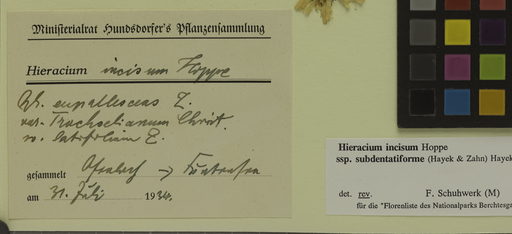 Ministerialrat Hundsdorfer's Pflanzensammlung
Hieracium incisum Hoppe
eupallescens Z.
var. Trachselianum Christ.
latifolium Z.
gesammelt
am 31. Juli 1934.
Hieracium incisum Hoppe
ssp. subdentatiforme (Hayek & Zahn) Hayek
det. rev. F. Schuhwerk (M)
für die "Florenliste des Nationalparks Berchtesga